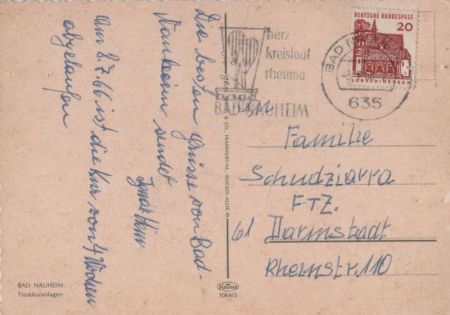 Die besten Grüsse von Bad-
Nauheim sendet
Am 8.7.66 ist die Kur von 4 Wochen
abgelaufen
BAD NAUHEIM
Trinkkuranlagen
herz
kreislauf
rheuma
BAD NAUHEIM
BAD
635
DEUTSCHE BUNDESPOST
20
LORSCH/HESSEN
An
Familie
Schudziarra
FTZ.
61 Darmstadt
Rheinstr. 110